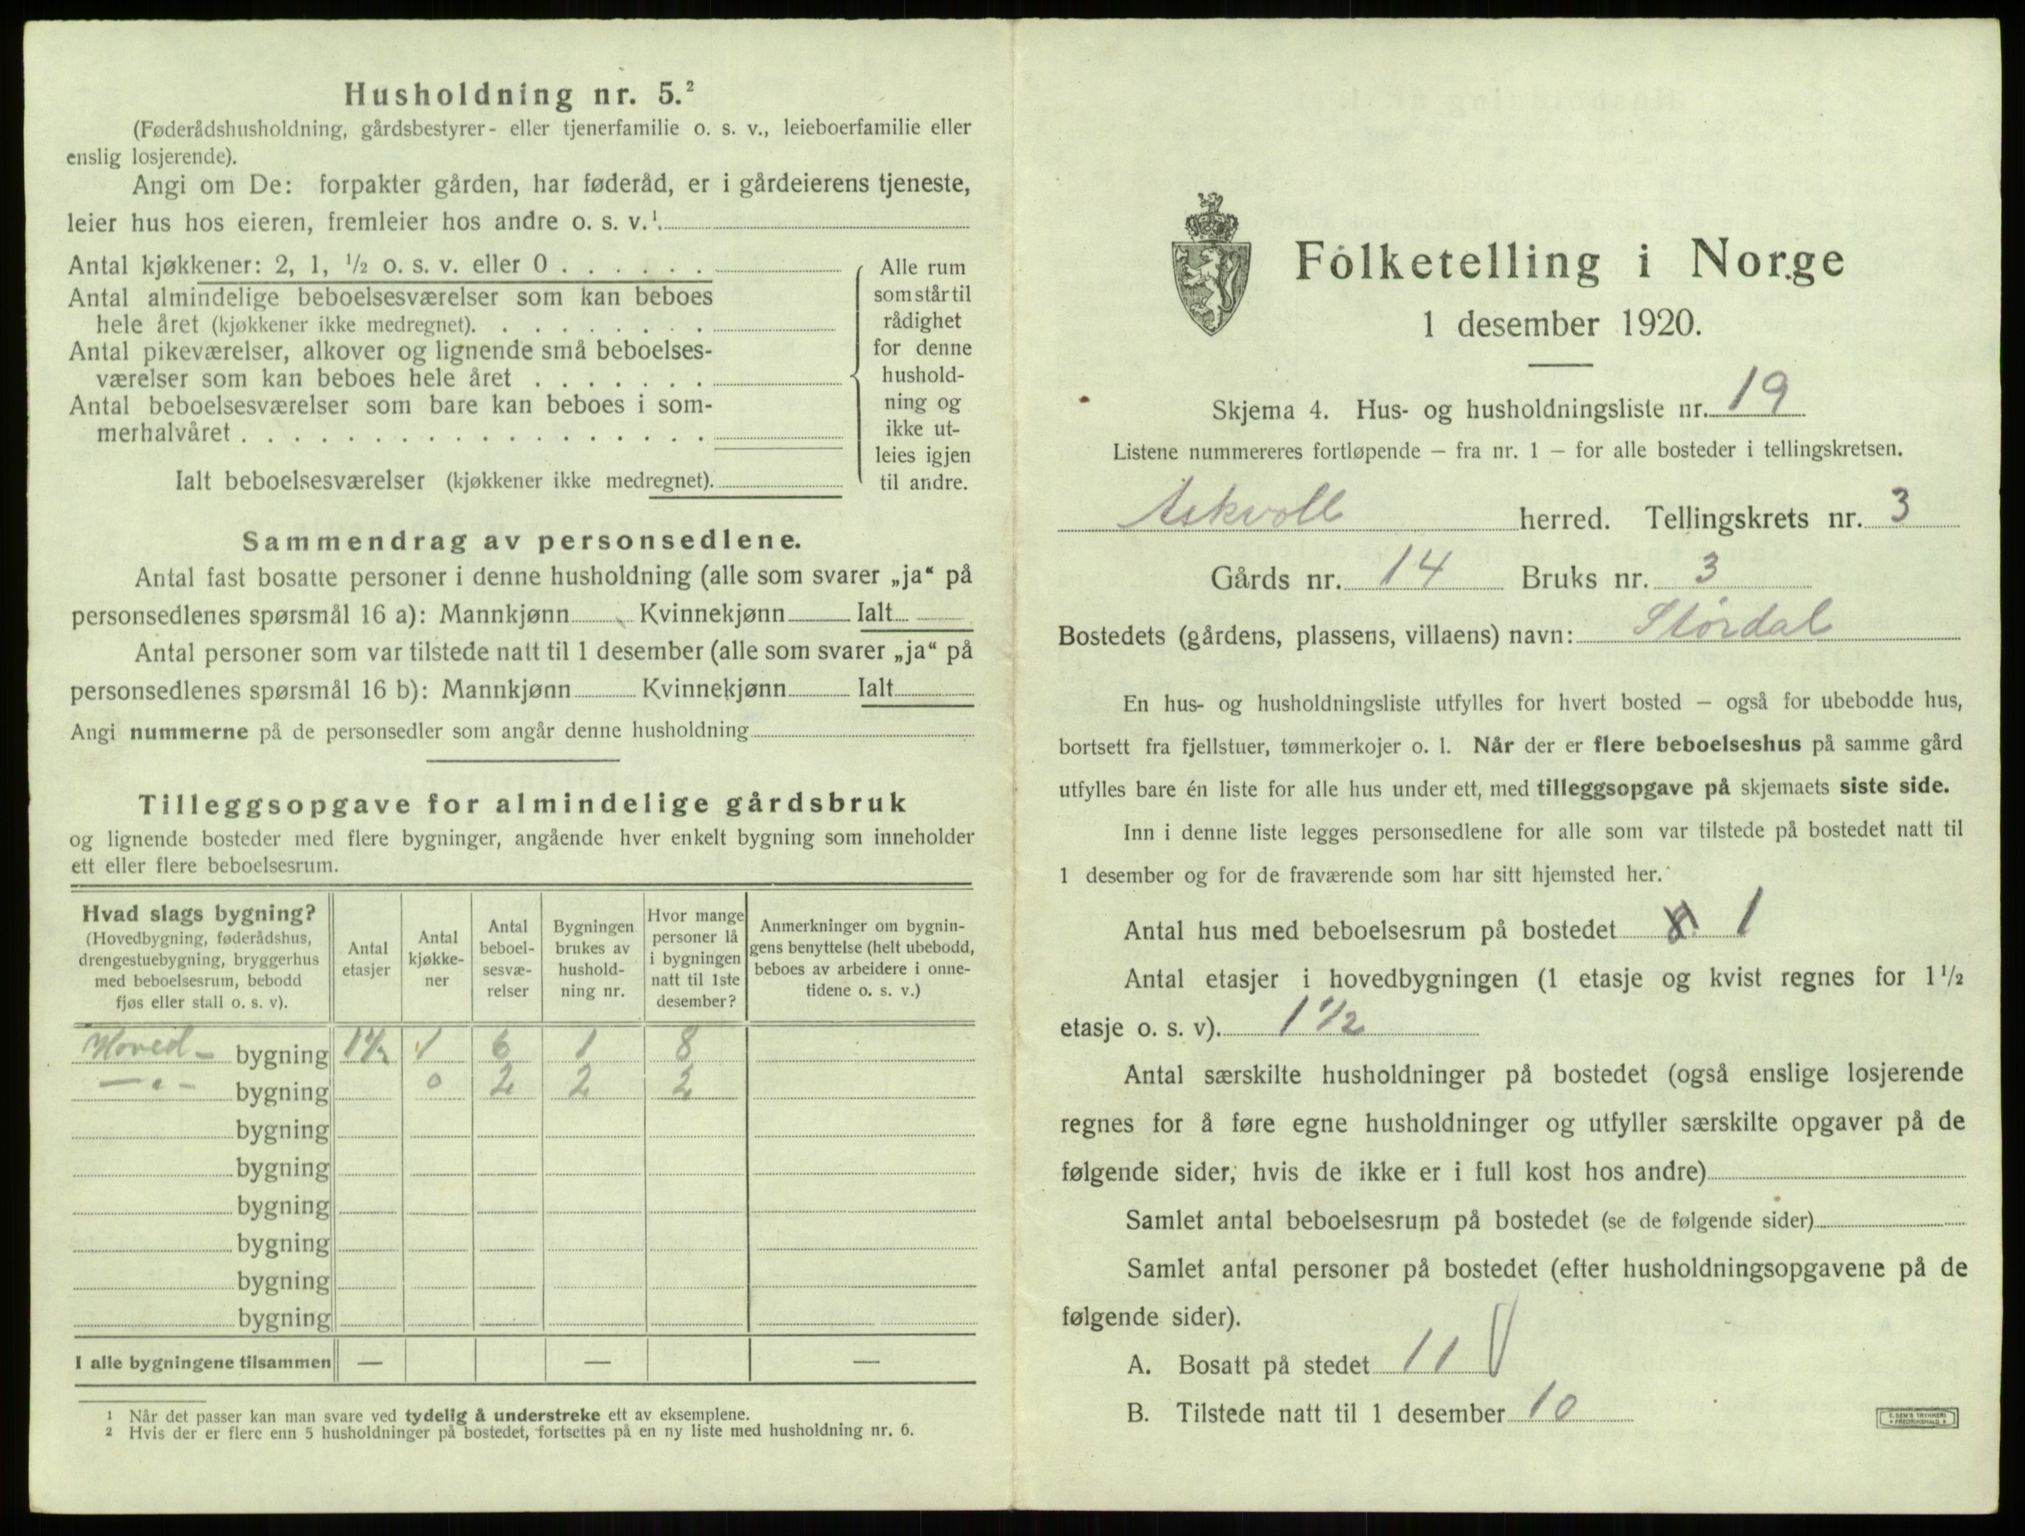 Husholdning nr. 5.²
(Føderådshusholdning, gårdsbestyrer- eller tjenerfamilie o. s. v., leieboerfamilie eller
enslig losjerende).
Angi om De: forpakter gården, har føderåd, er i gårdeierens tjeneste,
leier hus hos eieren, fremleier hos andre o. s. v.¹
Antal kjøkkener: 2, 1, ½ o. s. v. eller 0 . . . . . .
Antal almindelige beboelsesværelser som kan beboes
hele året (kjøkkener ikke medregnet). . . . . . . . .
Antal pikeværelser, alkover og lignende små beboelses-
værelser som kan beboes hele året . . . . . . .
Antal beboelsesværelser som bare kan beboes i som-
merhalvåret . . . . . . . . . . . . . . . . . .
Ialt beboelsesværelser (kjøkkener ikke medregnet).
Alle rum
som står til
rådighet
for denne
hushold-
ning og
ikke ut-
leies igjen
til andre.
Sammendrag av personsedlene.
Antal fast bosatte personer i denne husholdning (alle som svarer „ja“ på
personsedlenes spørsmål 16 a): Mannkjønn Kvinnekjønn Ialt
Antal personer som var tilstede natt til 1 desember (alle som svarer „ja“ på
personsedlenes spørsmål 16 b): Mannkjønn Kvinnekjønn Ialt
Angi nummerne på de personsedler som angår denne husholdning
Tilleggsopgave for almindelige gårdsbruk
og lignende bosteder med flere bygninger, angående hver enkelt bygning som inneholder
ett eller flere beboelsesrum.
Hvad slags bygning?
(Hovedbygning, føderådshus,
drengestuebygning, bryggerhus
med beboelsesrum, bebodd
fjøs eller stall o. s. v).
Antal
etasjer
Antal
kjøkke-
ner
Antal
beboel-
sesvæ-
relser
Bygningen
brukes av
hushold-
ning nr.
Hvor mange
personer lå
i bygningen
natt til 1ste
desember?
Anmerkninger om bygnin-
gens benyttelse (helt ubebodd,
beboes av arbeidere i onne-
tidene o. s. v.)
Hoved- bygning 1½ 1 6 1 8
—„— bygning 0 2 2 2
bygning
bygning
bygning
bygning
bygning
bygning
I alle bygningene tilsammen — — —
¹ Når det passer kan man svare ved tydelig å understreke ett av eksemplene.
² Hvis der er flere enn 5 husholdninger på bostedet, fortsettes på en ny liste med husholdning nr. 6.
Folketelling i Norge
1 desember 1920.
Skjema 4. Hus- og husholdningsliste nr. 19
Listene nummereres fortløpende – fra nr. 1 – for alle bosteder i tellingskretsen.
Askvoll herred. Tellingskrets nr. 3
Gårds nr. 14 Bruks nr. 3
Bostedets (gårdens, plassens, villaens) navn: Størdal
En hus- og husholdningsliste utfylles for hvert bosted – også for ubebodde hus,
bortsett fra fjellstuer, tømmerkojer o. l. Når der er flere beboelseshus på samme gård
utfylles bare én liste for alle hus under ett, med tilleggsopgave på skjemaets siste side.
Inn i denne liste legges personsedlene for alle som var tilstede på bostedet natt til
1 desember og for de fraværende som har sitt hjemsted her.
Antal hus med beboelsesrum på bostedet 1
Antal etasjer i hovedbygningen (1 etasje og kvist regnes for 1½
etasje o. s. v). 1½
Antal særskilte husholdninger på bostedet (også enslige losjerende
regnes for å føre egne husholdninger og utfyller særskilte opgaver på de
følgende sider, hvis de ikke er i full kost hos andre)
Samlet antal beboelsesrum på bostedet (se de følgende sider)
Samlet antal personer på bostedet (efter husholdningsopgavene på de
følgende sider).
A. Bosatt på stedet 11
B. Tilstede natt til 1 desember 10